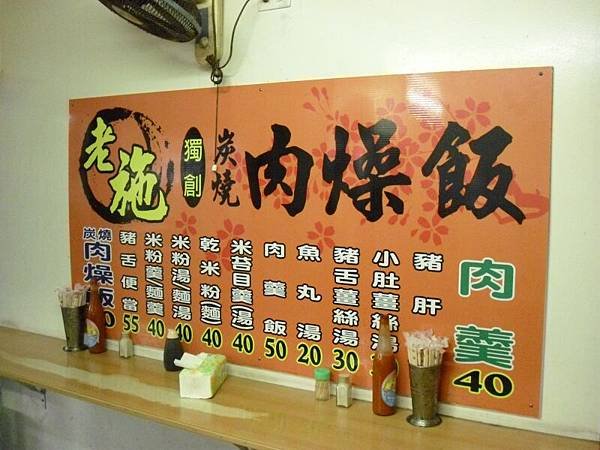 老施
獨創
炭燒
肉燥飯
炭燒
肉燥飯
豬舌便當 55
米粉羹/麵羹 40
米粉湯/麵湯 40
乾米粉/麵 40
米苔目羹/湯 40
肉羹飯 50
魚丸湯 20
豬舌薑絲湯 30
小肚薑絲湯
豬肝
肉羹 40